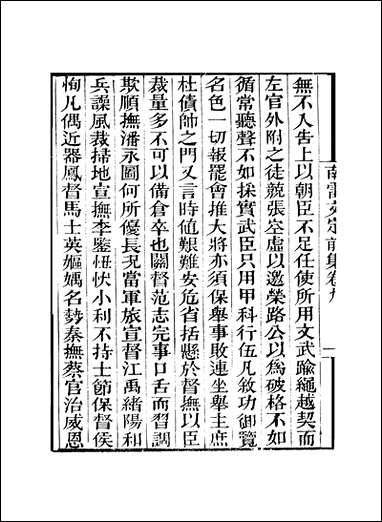 南雷文定前集卷九
一
無不人告上以朝臣不足任使所用文武踰繩越契而
左官外附之徒競張空虛以邀榮路公以為破格不如
循常聽聲不如採實武臣只用甲科行伍凡敘功御覽
名色一切報罷會推大將亦須保舉事敗連坐舉主庶
杜債師之門又言時値艱難安危省括懸於督撫以臣
裁量多不可以備倉卒也關督范志完事口舌而習調
欺順撫潘永圖何所優長況當軍旅宣督江禹緒陽和
兵譟風裁掃地宣撫李鑒忸忕小利不持士節保督侯
恂凡偶近器鳳督馬士英嫗媀名勢秦撫蔡官治威恩